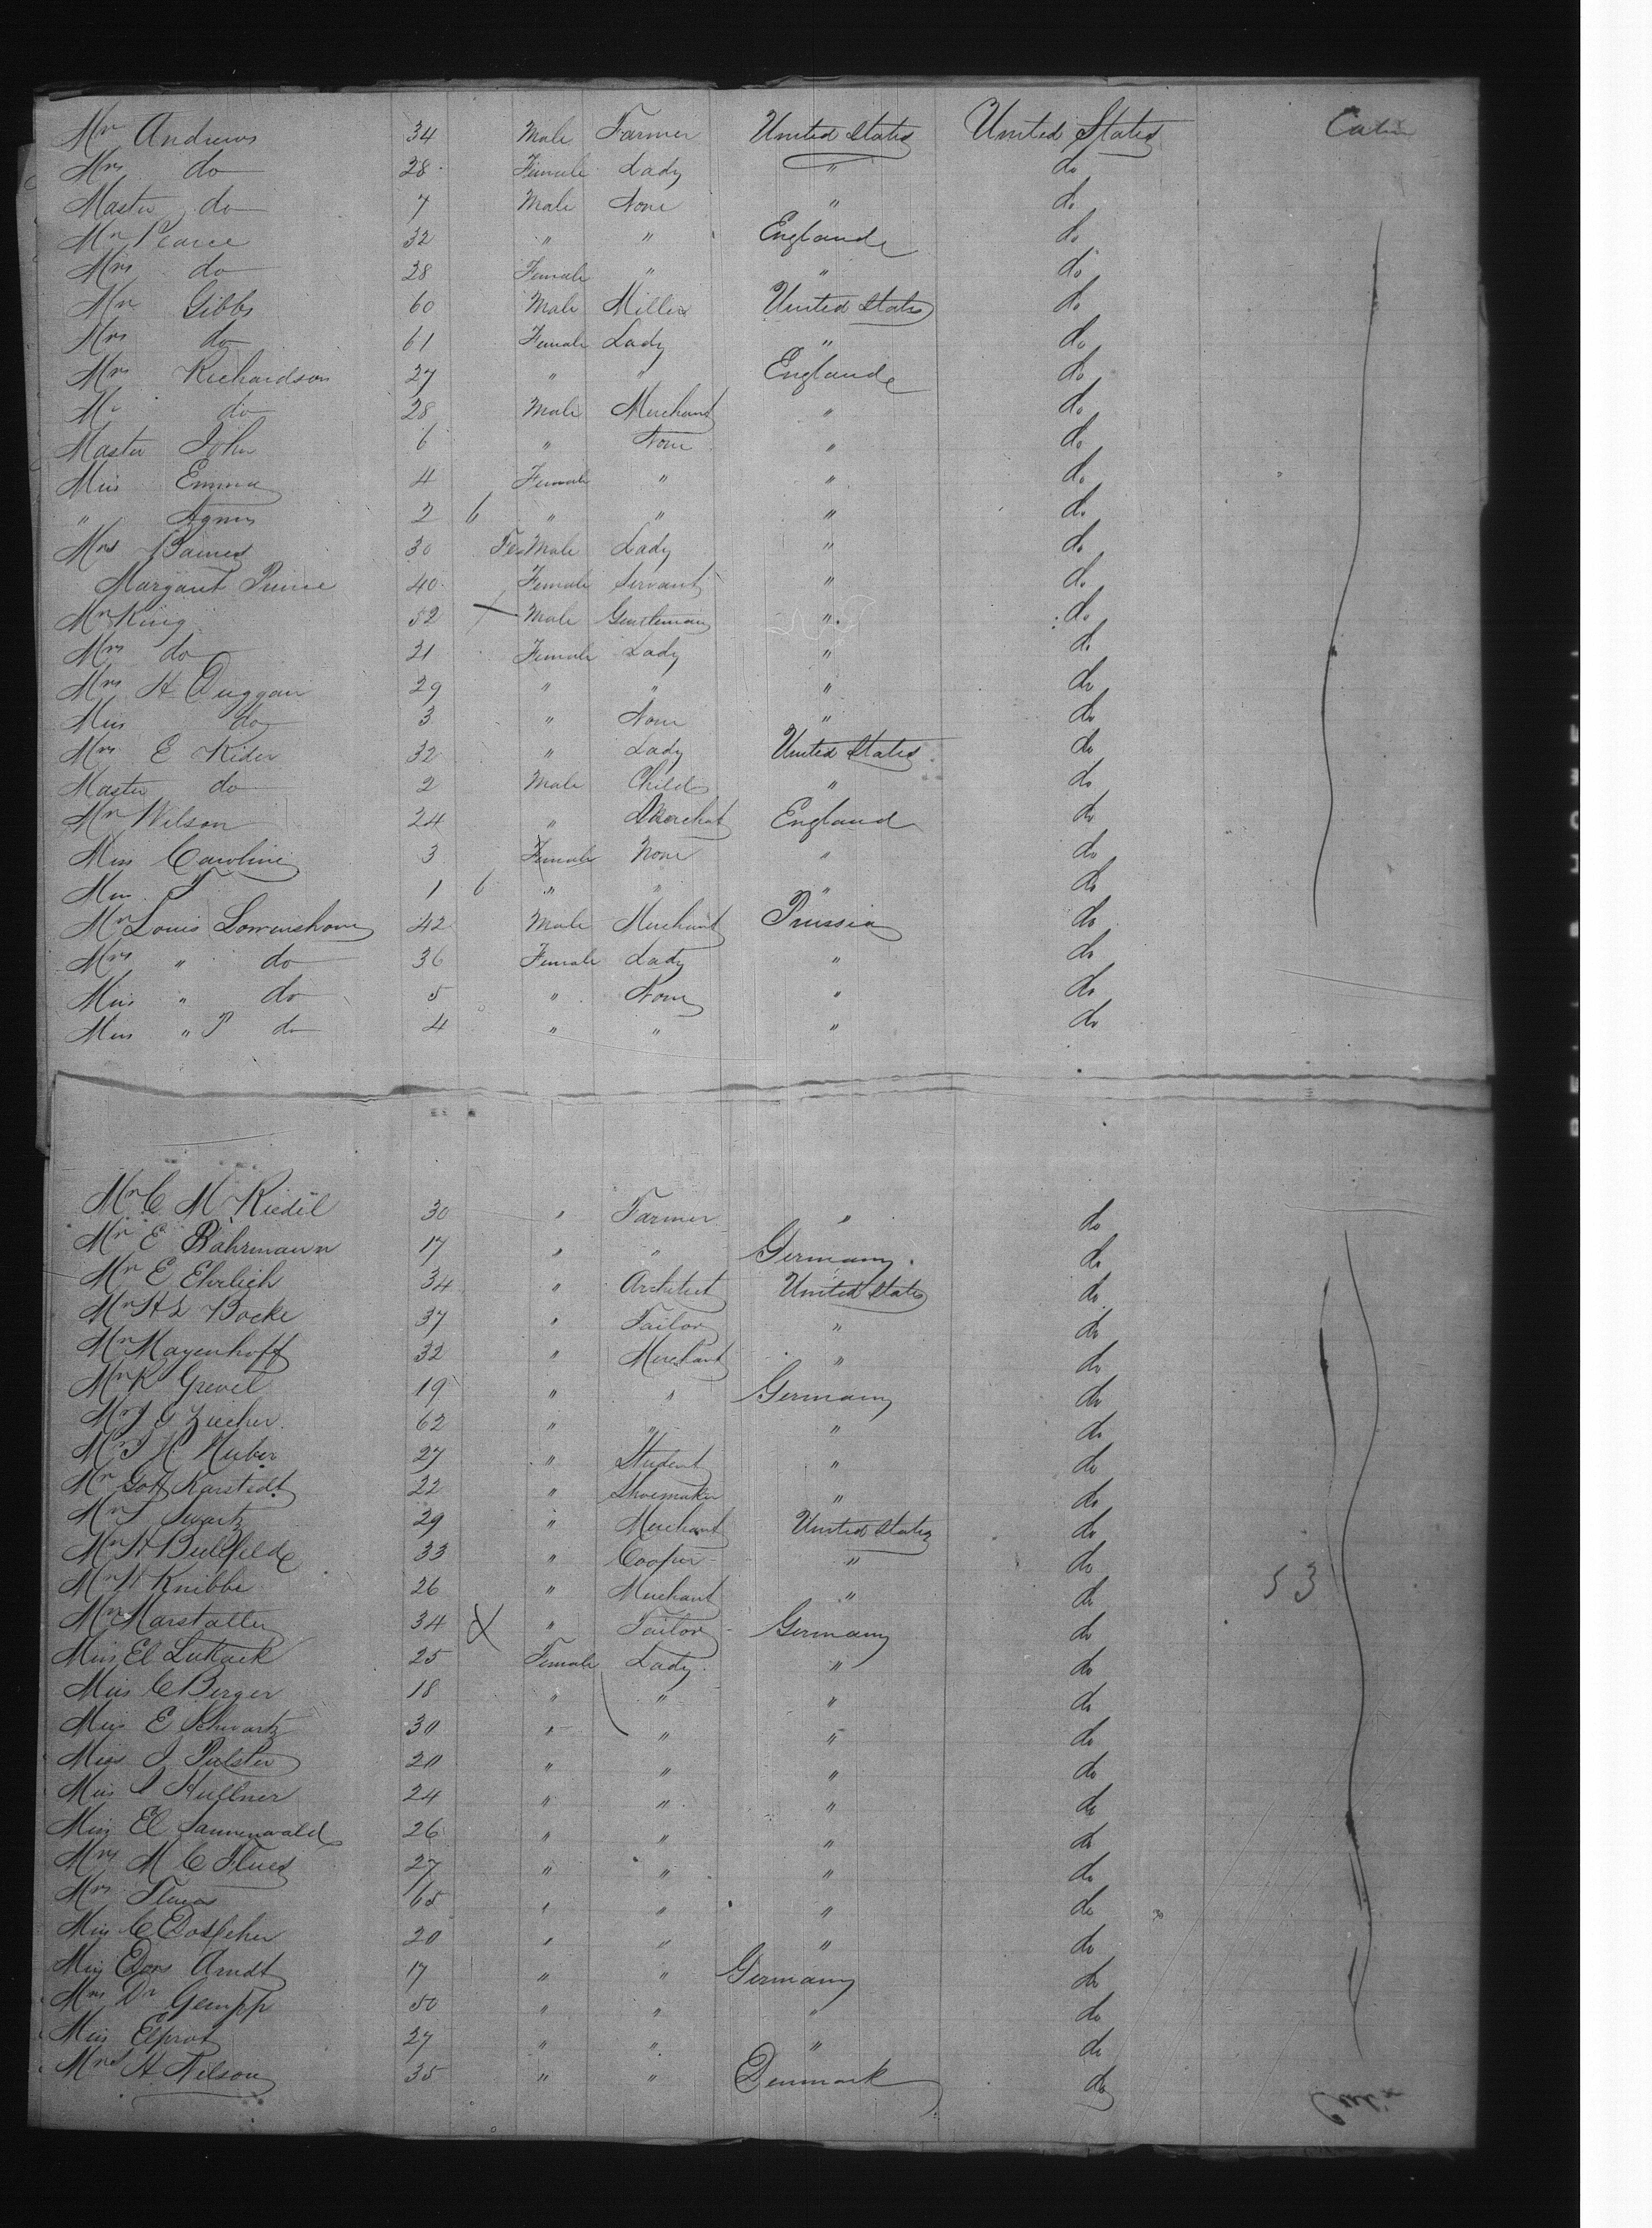 Mr Andrews 34 Male Farmer United States United States Cabin
Mrs do 28 Female Lady " do
Master do 7 Male None " do
Mr Pearce 32 " " England do
Mrs do 28 Female " " do
Mr Gibbs 60 Male Miller United States do
Mrs do 61 Female Lady " do
Mrs Richardson 27 " " England do
Mr do 28 Male Merchant " do
Master John 6 " None " do
Miss Emma 4 Female " " do
" Agnes 2 6 " " " do
Mrs Baines 30 FeMale Lady " do
Margaret 40 Female Servant " do
Mr King 52 Male Gentleman " do
Mrs do 21 Female Lady " do
Mrs H Duggan 29 " " " do
Miss do 3 " None " do
Mrs E Kider 32 " Lady United States do
Master do 2 Male Child " do
Mr Wilson 24 " Merchat England do
Miss Caroline 3 Female None " do
Miss 1 6 " " " do
Mr Louis 42 Male Merchant Prussia do
Mrs " do 36 Female Lady " do
Miss " do 5 " None " do
Miss " P do 4 " " " do
Mr C M Riedel 30 " Farmer " do
Mr E Bahrmann 17 " " Germany do
Mr E Ehrlich 34 " Architect United States do
Mr H L Bocke 37 " Tailor " do
Mr Mayenhoff 32 " Merchant " do
Mr K Grevel 19 " " Germany do
Mr J G 62 " " " do
Mr J H Huber 27 " Student " do
Mr Gott Karstedt 22 " Shoemaker " do
Mr S Swartz 29 " Merchant United States do
Mr H 33 " Cooper " do
Mr H Knibbe 26 " Merchant " do 53
Mr Marstaller 34 " Tailor Germany do
Miss El 25 Female Lady " do
Miss C Berger 18 " " " do
Miss E Schwartz 30 " " " do
Miss J Pulster 20 " " " do
Miss J Hullner 24 " " " do
Miss El Sannenwald 26 " " " do
Mrs M C Flues 27 " " " do
Mrs Flues 65 " " " do
Miss C 20 " " " do
Miss Arndt 17 " " Germany do
Mrs Dr Gempp 50 " " " do
Miss 27 " " " do
Mrs H Nelson 35 " " Denmark do Cabin